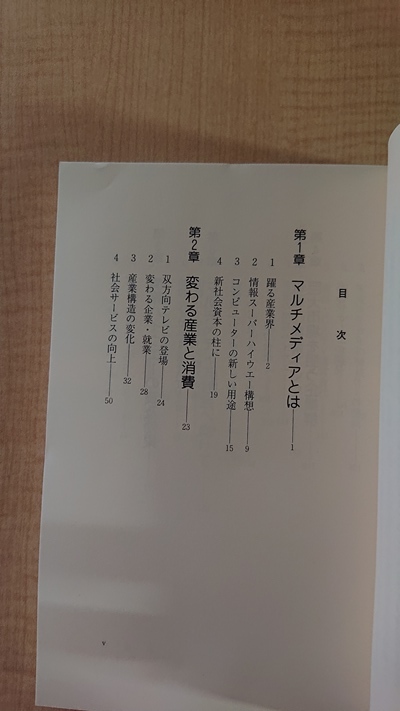 目次
第1章 マルチメディアとは——1
1 躍る産業界——2
2 情報スーパーハイウエー構想——9
3 コンピューターの新しい用途——15
4 新社会資本の柱に——19
第2章 変わる産業と消費——23
1 双方向テレビの登場——24
2 変わる企業・就業——28
3 産業構造の変化——32
4 社会サービスの向上——50
v